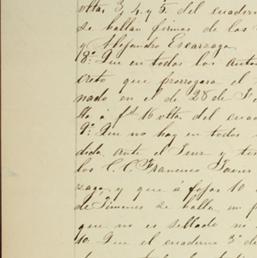 vtta 3, 4 y 5. del cuader
se hallan firmas de los
y Alejandro Escarzaga.
8ª Que en todos los
creto que prorrogara el
nado en el de 28 de
lla á f. 16 vtta. del cua
9ª Que no hay en todos
ante el Juez y
los C. C. Francisco
zaga, y que a fojas 10
de Jimenes se halla un
que no es sellado no
10. Que el cuaderno 3º de